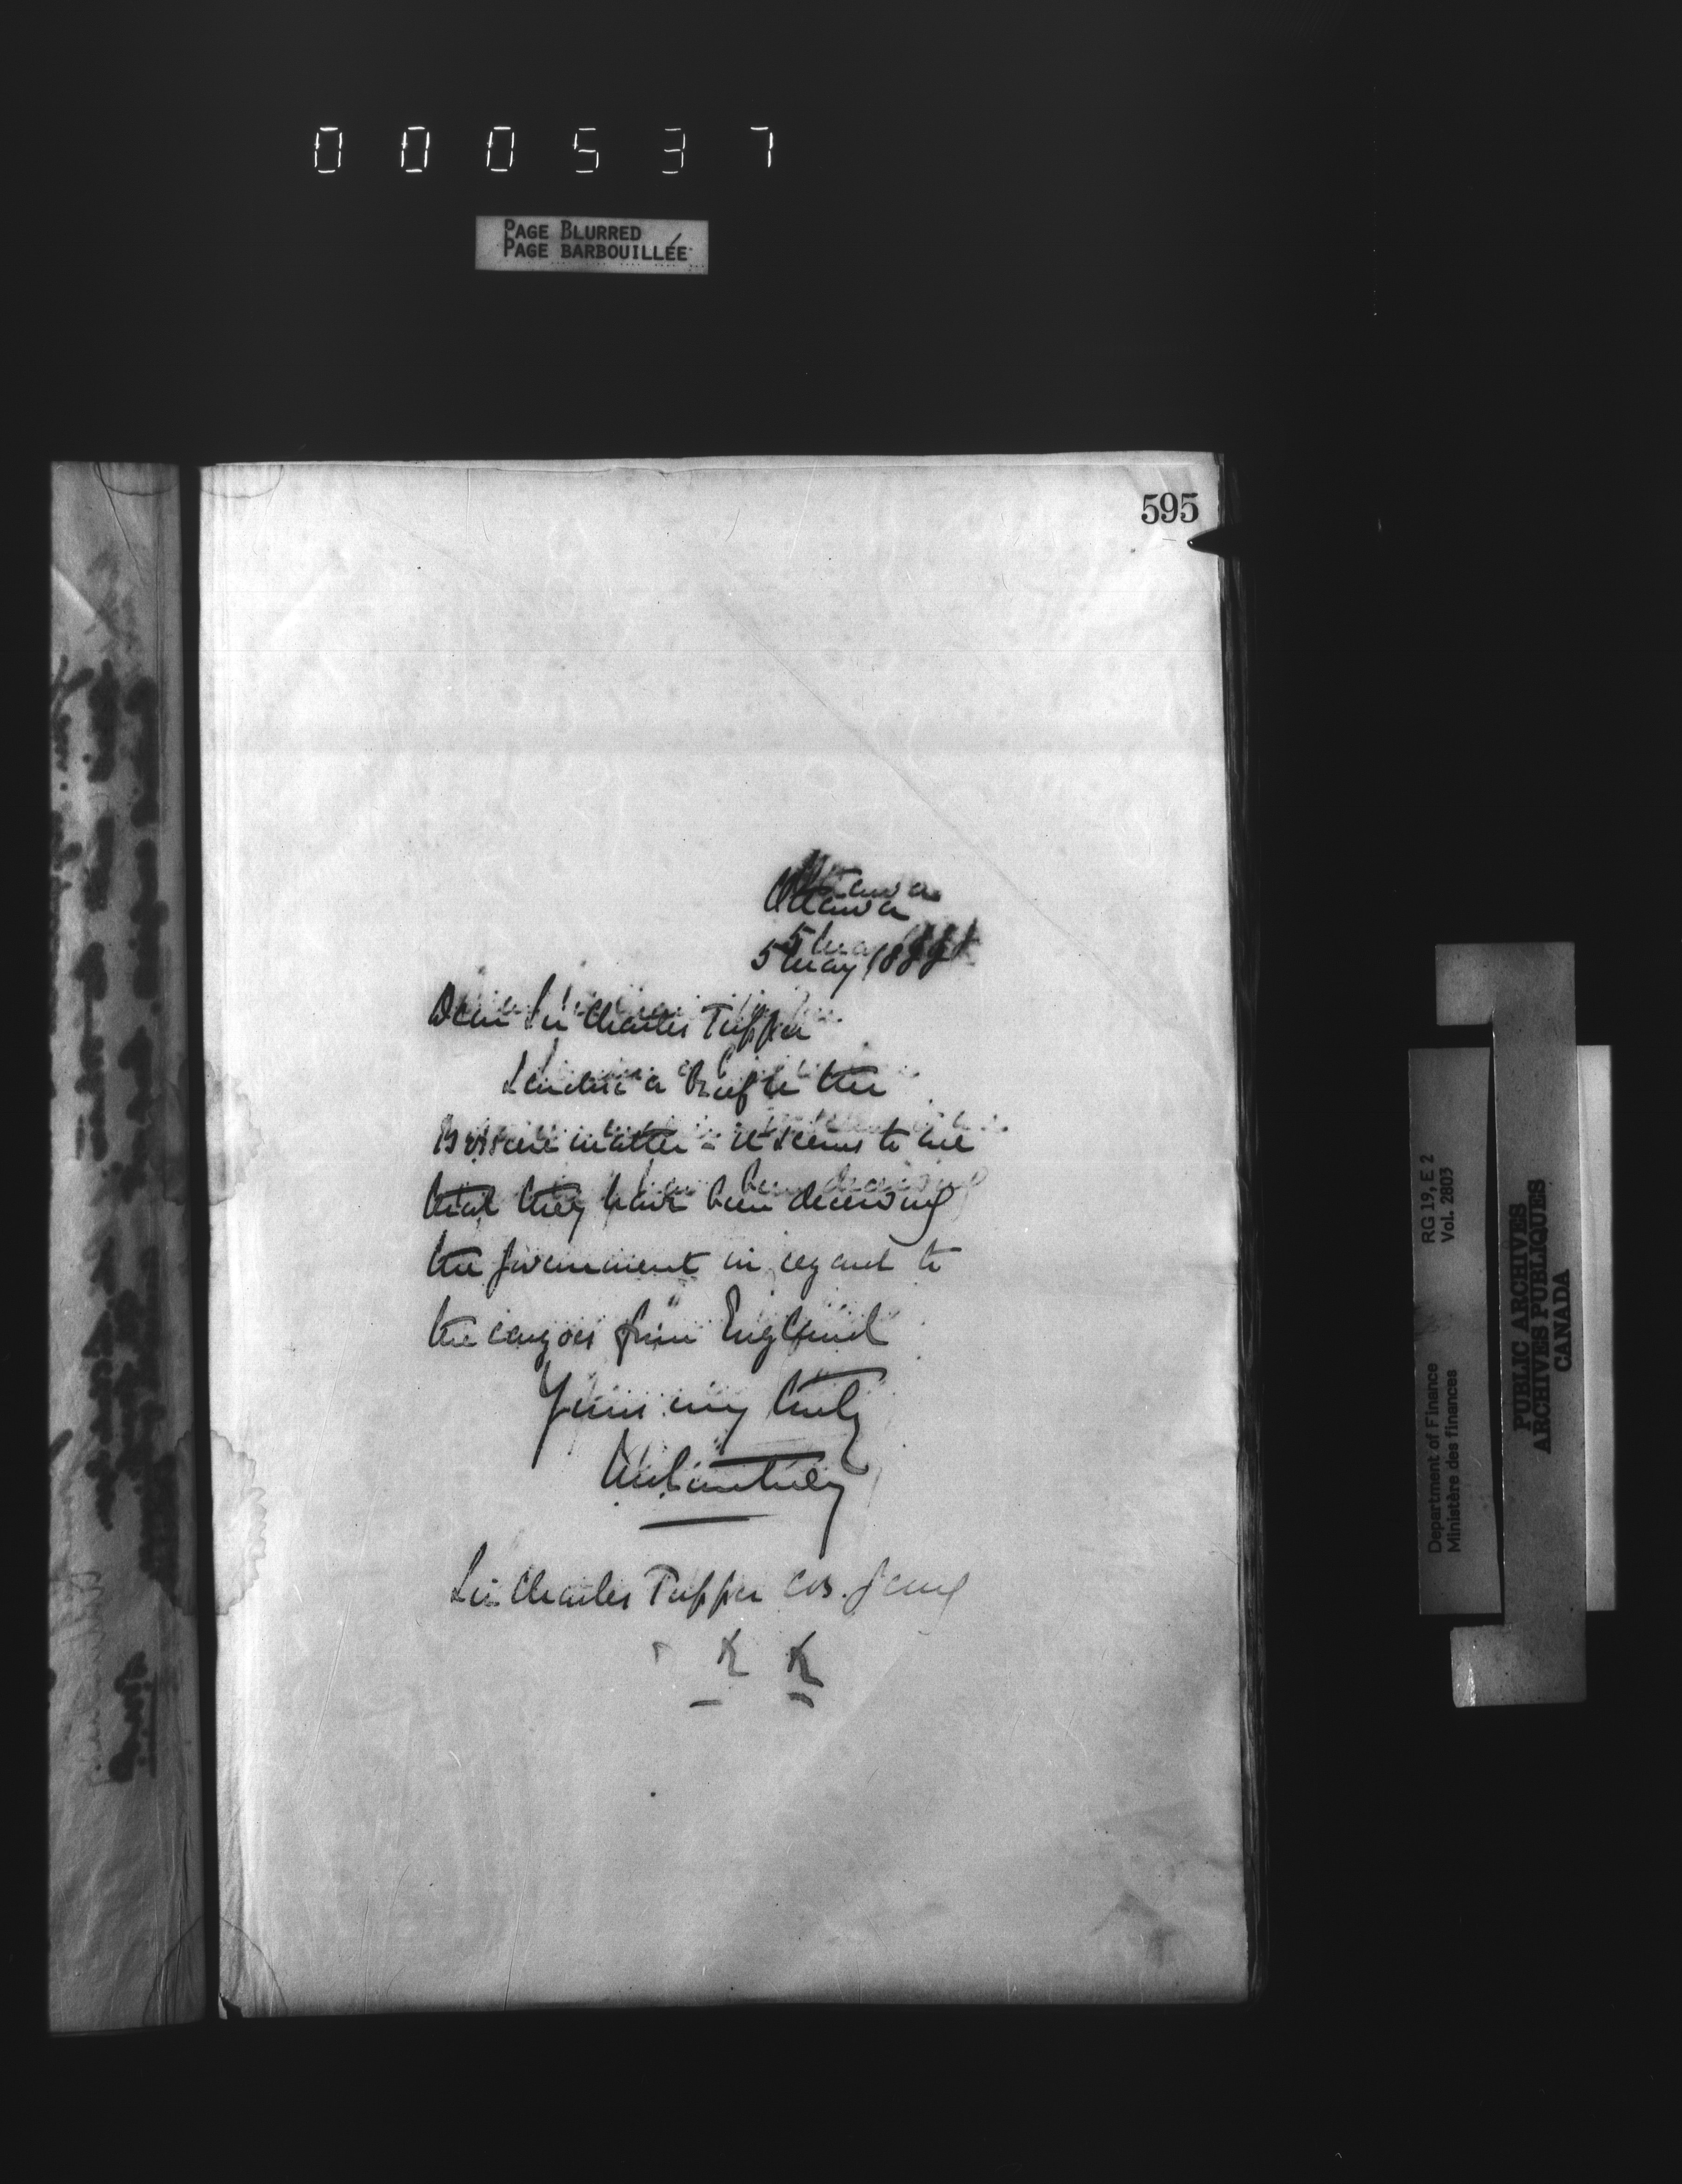 000537
PAGE BLURRED
PAGE BARBOUILLÉE
595
Ottawa
5 May 188
Dear Sir Charles Tupper
I enclose a Brief in the
matter - it seems to me
that they have been deceiving
the Government in regard to
the cargoes from England
Yours very truly
JMCourtney
Sir Charles Tupper CB. GCMG
RG 19, E 2
Vol. 2803
Department of Finance
Ministère des finances
PUBLIC ARCHIVES
ARCHIVES PUBLIQUES
CANADA